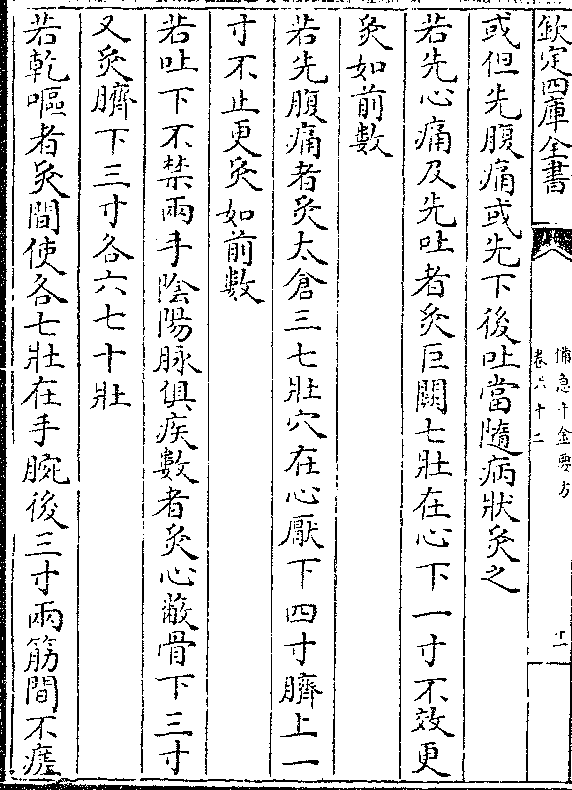 欽定四庫全書
備急千金要方
卷六十二
十一
或但先腹痛或先下後吐當隨病狀灸之
若先心痛及先吐者灸巨闕七壯在心下一寸不效更
灸如前數
若先腹痛者灸太倉三七壯穴在心厭下四寸臍上一
寸不止更灸如前數
若吐下不禁兩手陰陽脉俱疾數者灸心蔽骨下三寸
又灸臍下三寸各六七十壯
若乾嘔者灸間使各七壯在手腕後三寸兩筋間不瘥